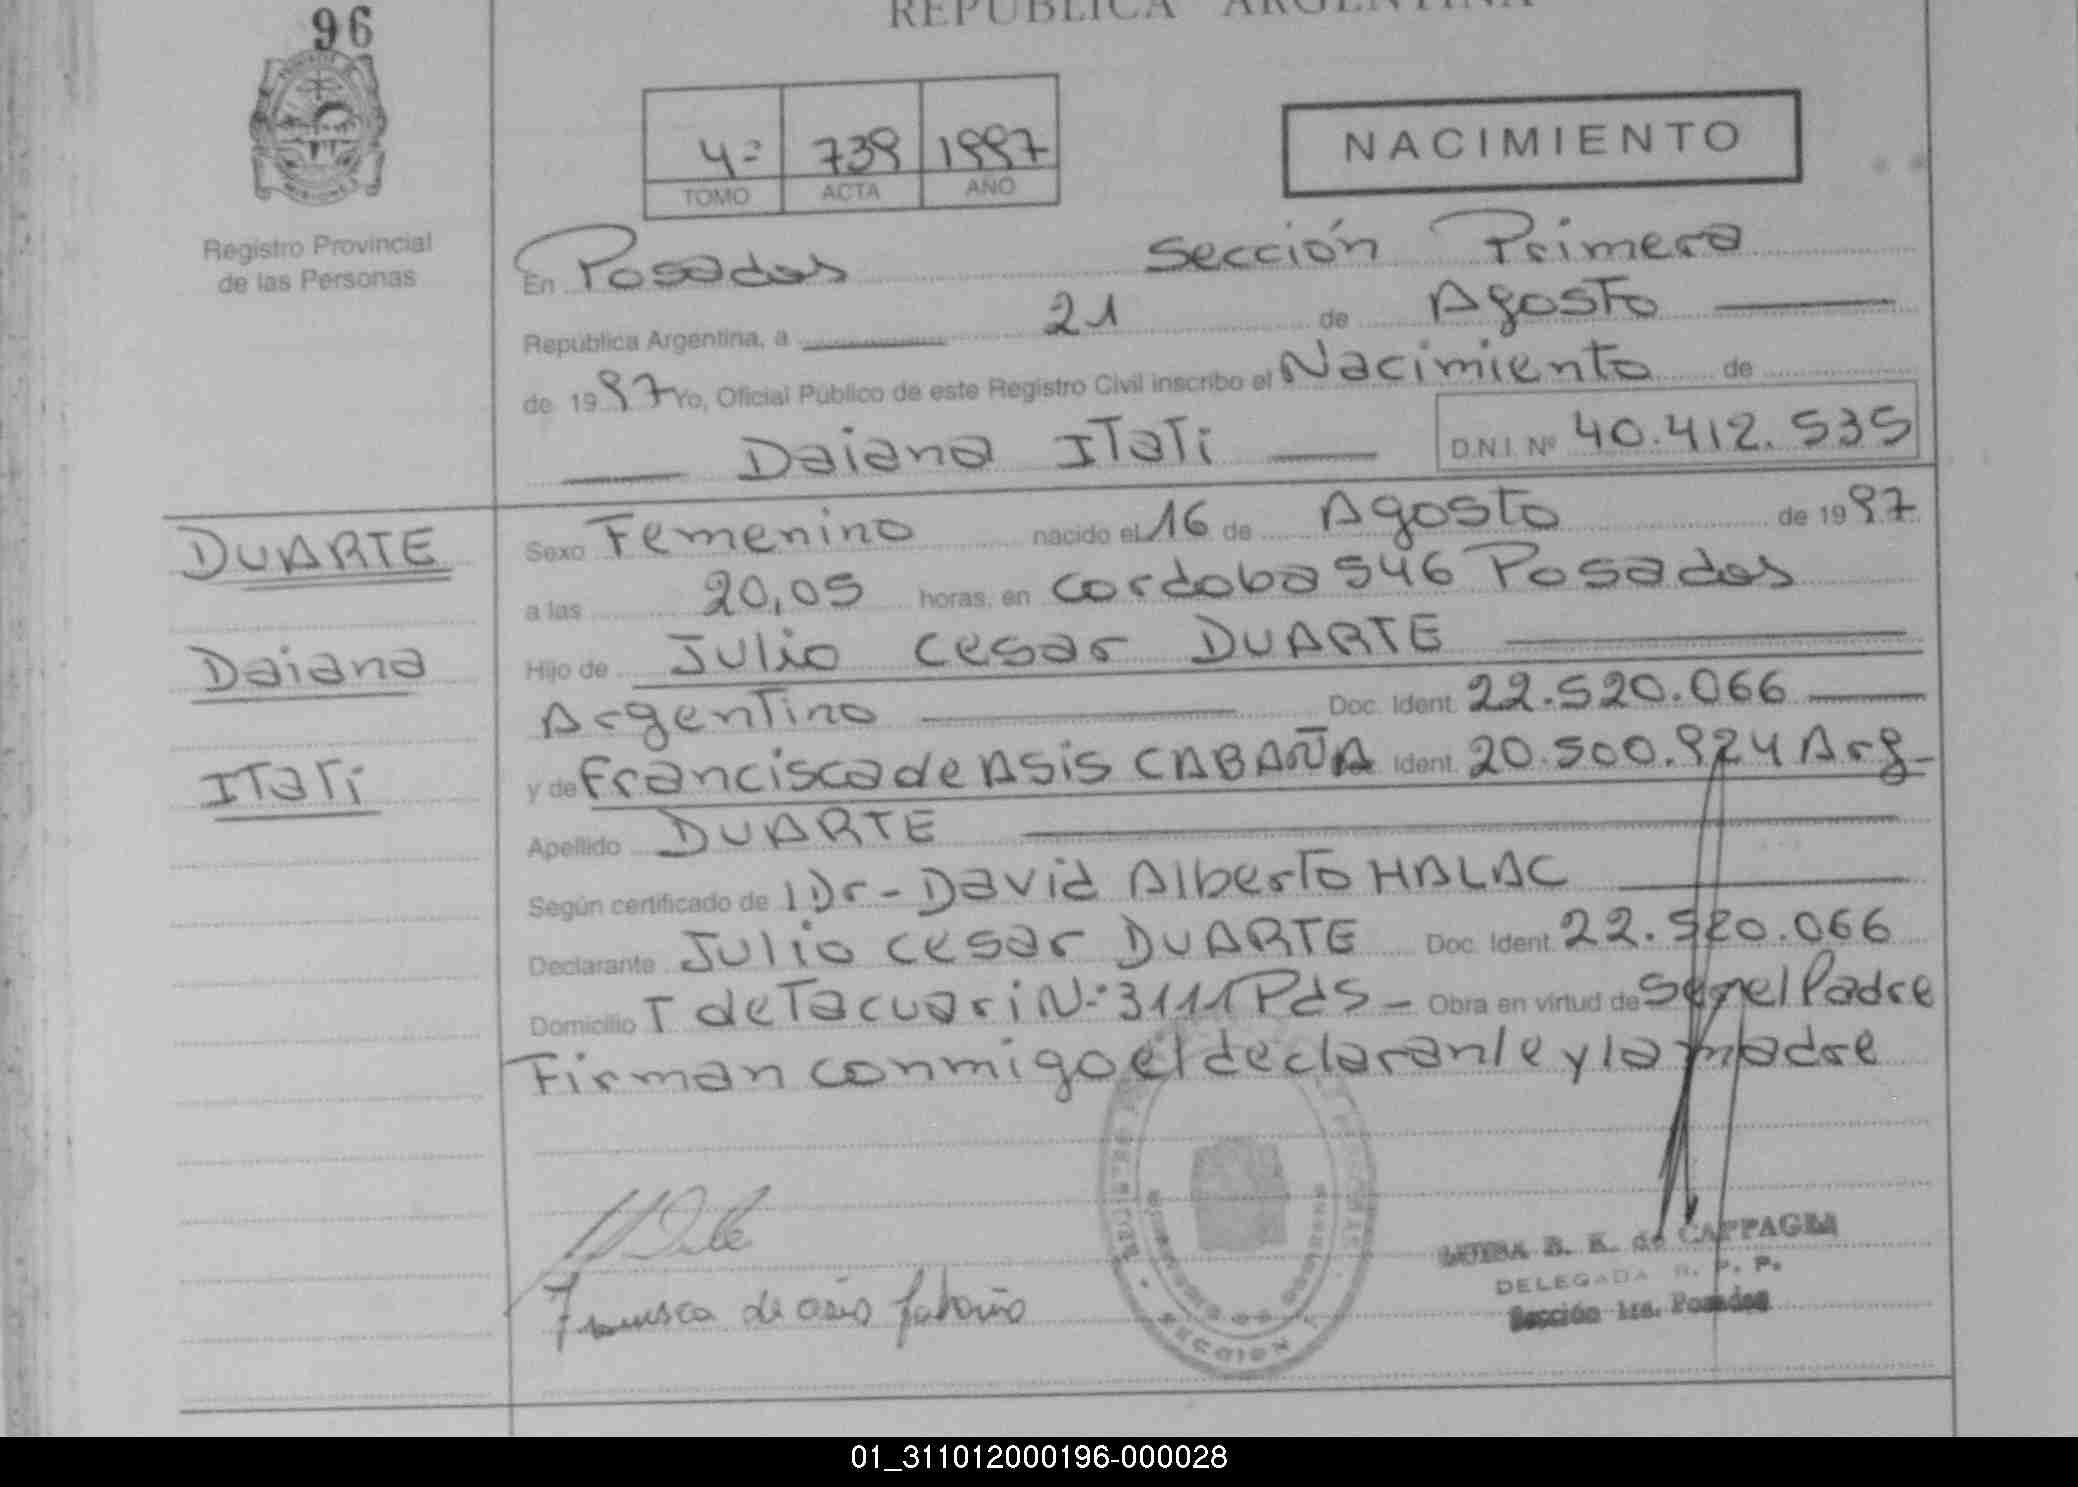 96
REPUBLICA ARGENTINA
Registro Provincial
de las Personas
4º 739 1997
TOMO ACTA AÑO
NACIMIENTO
En Posadas Sección Primera
República Argentina, a 21 de Agosto
de 1997 Yo, Oficial Público de este Registro Civil inscribo el Nacimiento de
Daiana ITaTi D.N.I. Nº 40.412.535
DUARTE
Daiana
ITaTi
Sexo Femenino nacido el 16 de Agosto de 1997
a las 20,05 horas, en cordoba 546 Posadas
Hijo de Julio cesar DUARTE
Argentino Doc. Ident. 22.520.066
y de Francisca de Asis CABAÑA Ident. 20.500.924 Arg-
Apellido DUARTE
Según certificado de Dr- David Alberto HALAC
Declarante Julio cesar DUARTE Doc. Ident. 22.520.066
Domicilio T de Tacuari N.º 3111 Pds- Obra en virtud de ser el Padre
Firman conmigo el declarante y la madre
Francisca de asis Cabaña
B. K. de CAPPAGLI
DELEGADA R. P. P.
Sección 1ra. Posadas
01_311012000196-000028